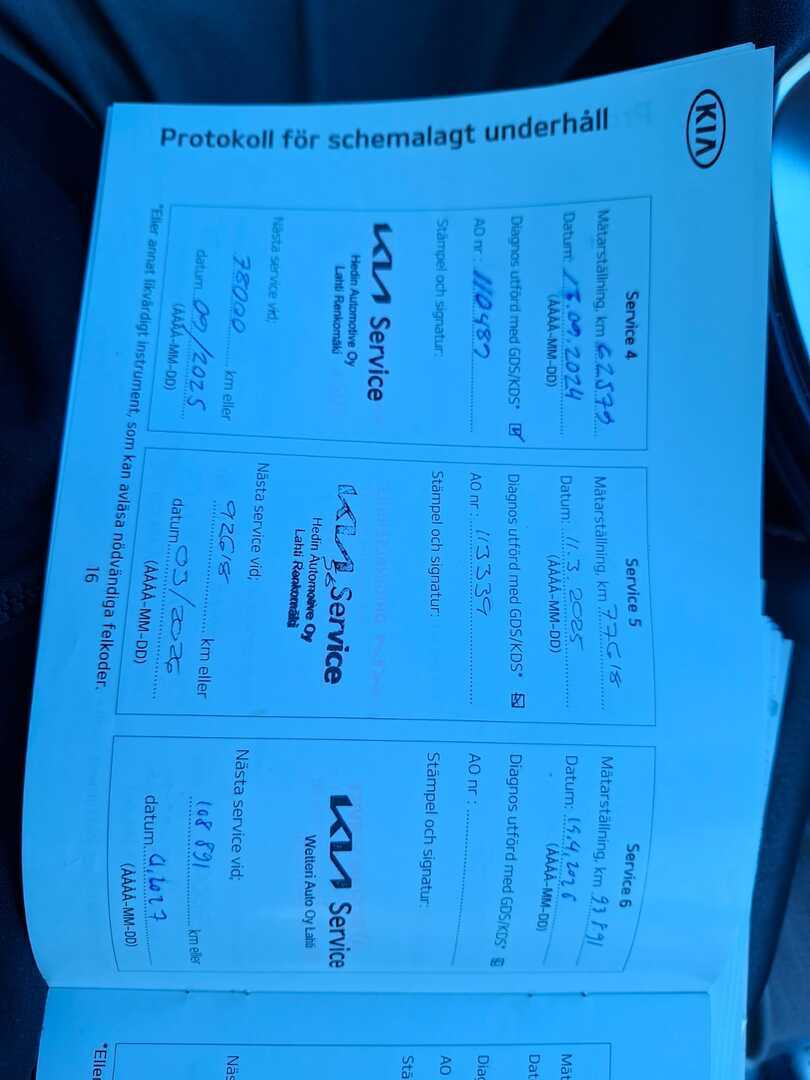 KIA
Protokoll för schemalagt underhåll
Service 4
Mätarställning, km 62579
Datum: 13.09.2024
(ÅÅÅÅ-MM-DD)
Diagnos utförd med GDS/KDS*
AO nr : 110489
Stämpel och signatur:
KIA Service
Hedin Automotive Oy
Lahti Renkomäki
Nästa service vid;
78000 km eller
datum: 09/2025
(ÅÅÅÅ-MM-DD)
Service 5
Mätarställning, km 77618
Datum: 11.3.2025
(ÅÅÅÅ-MM-DD)
Diagnos utförd med GDS/KDS*
AO nr : 113339
Stämpel och signatur:
KIA Service
Hedin Automotive Oy
Lahti Renkomäki
Nästa service vid;
92618 km eller
datum 03/2026
(ÅÅÅÅ-MM-DD)
Service 6
Mätarställning, km 93891
Datum: 15.4.2026
(ÅÅÅÅ-MM-DD)
Diagnos utförd med GDS/KDS*
AO nr :
Stämpel och signatur:
KIA Service
Wetteri Auto Oy Lahti
Nästa service vid;
108 891 km eller
datum 4.2027
(ÅÅÅÅ-MM-DD)
*Eller annat likvärdigt instrument, som kan avläsa nödvändiga felkoder.
16
Mät
Dat
Diag
AO
Stä
Näs
*Eller